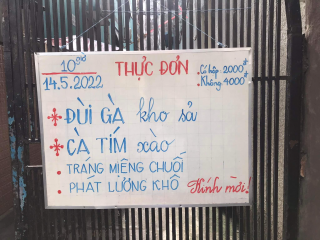 10 giờ
14.5.2022
THỰC ĐƠN
• Có hộp 2000đ
• Không 4000đ
* ĐÙI GÀ kho sả
* CÀ TÍM xào
• TRÁNG MIỆNG CHUỐI
• PHÁT LƯƠNG KHÔ
Kính mời!